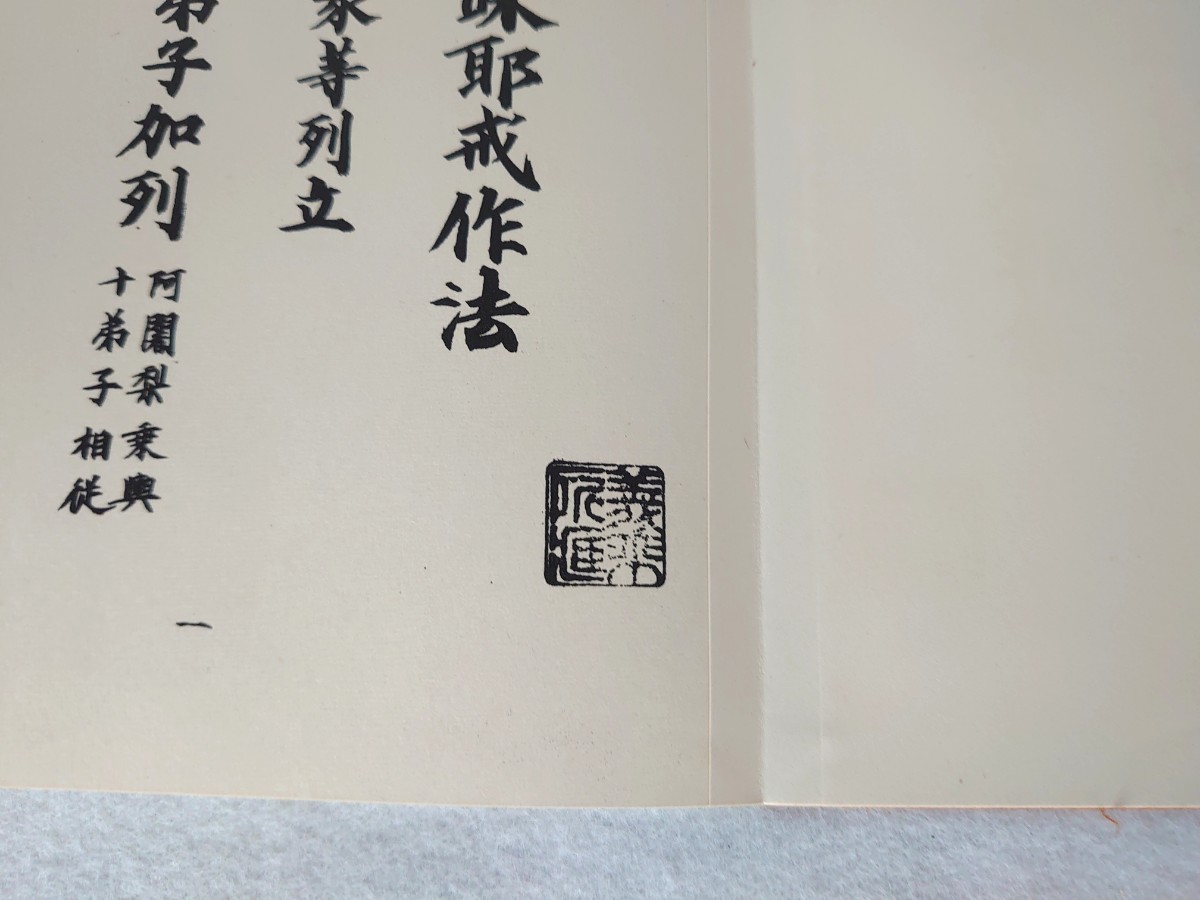 昧耶戒作法
衆等列立
弟子加列
阿闍梨乗輿
十弟子相従
一